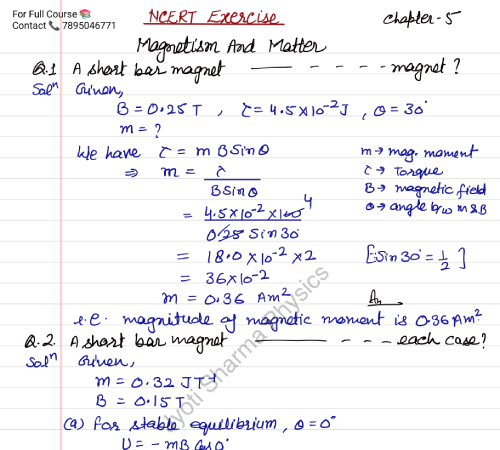 For Full Course 📚
Contact 📞 7895046771
NCERT Exercise
Chapter-5
Magnetism And Matter
Q.1 A short bar magnet ——— - - - - magnet?
Solⁿ Given,
B = 0.25 T , τ = 4.5×10⁻² J , θ = 30°
m = ?
We have τ = m B Sin θ
⇒ m = τ / B sin θ
= 4.5×10⁻² × 100 4 / 0.25 Sin 30
= 18.0 × 10⁻² × 2
= 36×10⁻²
m = 0.36 Am²
m → mag. moment
τ → Torque
B → magnetic field
θ → angle b/w m & B
[∵ Sin 30° = 1/2 ]
Ans
i.e. magnitude of magnetic moment is 0.36 Am²
Q.2. A short bar magnet ——— - - - each case?
Solⁿ Given,
m = 0.32 JT⁻¹
B = 0.15 T
(a) for stable equilibrium, θ = 0°
U = - mB Cos 0°
Jyoti Sharma Physics